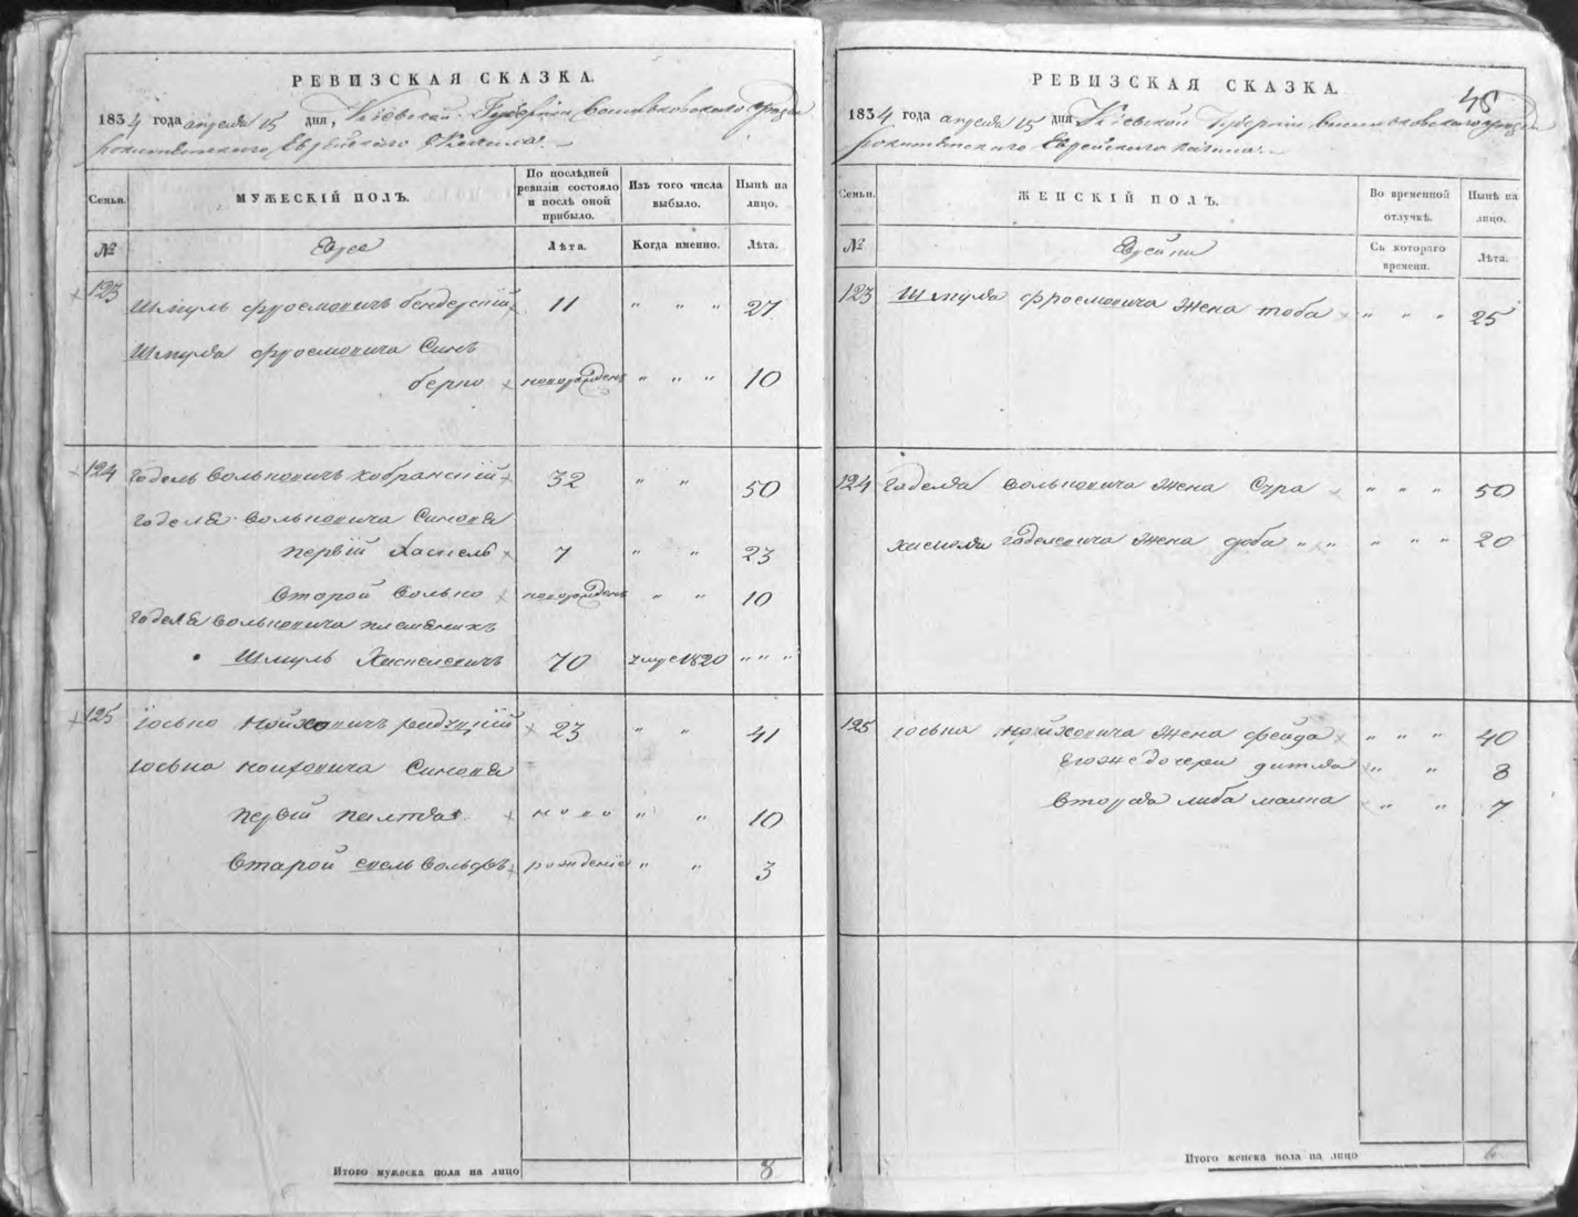 РЕВИЗСКАЯ СКАЗКА.
1834 года апреля 15 дня, Кіевской Губерніи Васильковского уезда
рокитянского Еврейского Кагала.
Семьи.
МУЖЕСКІЙ ПОЛЪ.
По послѣдней ревизіи состояло и послѣ оной прибыло.
Изъ того числа выбыло.
Нынѣ на лицо.
№
Евреи
Лѣта.
Когда именно.
Лѣта.
123 Шмуль Фроемовичъ бендерскій 11 " " " 27
Шмуля Фроемовича Синъ
берко новорожденъ " " " 10
124 Годель Вольковичъ 32 " " 50
Годеля Вольковича Синовя
первій Хаскель 7 " " 23
Второй Волько новорожденъ " " 10
Годеля Вольковича племеникъ
Шмуль Хаскелевичъ 70 умре 1820 " " "
125 Іосько Мойховичъ 23 " " 41
Іоська Мойховича Синовя
первій ново " " 10
Старой Вольфъ рожденіе " " 3
Итого мужеска пола на лицо 8
РЕВИЗСКАЯ СКАЗКА.
45
1834 года апреля 15 дня Кіевской Губерніи Васильковского уезда
рокитянскаго Еврейского кагала.
Семьи.
ЖЕНСКІЙ ПОЛЪ.
Во временной отлучкѣ.
Нынѣ на лицо.
№
Еврейки
Съ котораго времени.
Лѣта.
123 Шмуля Фроемовича жена тоба " " " 25
124 Годеля Вольковича жена Сура " " " 50
Хаскеля Годелевича жена доба " " " " " 20
125 Іоська Мойховича жена фейга " " " 40
Егоже дочери " " 8
Вторая либа малка " " 7
Итого женска пола на лицо 6